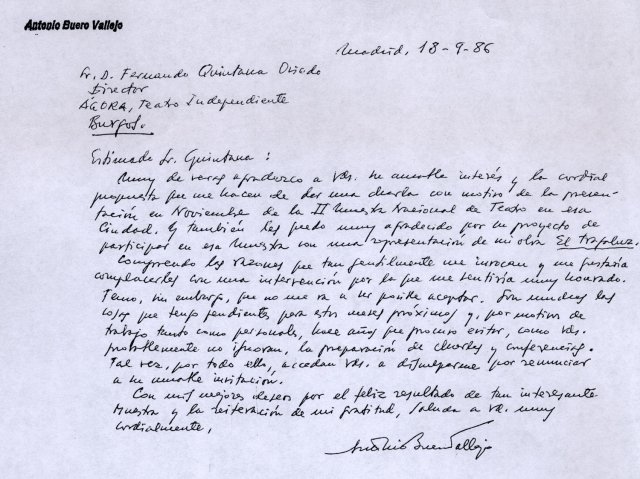 Antonio Buero Vallejo
Madrid, 13-9-86
Sr. D. Fernando Quintana Oviedo
Director
ÁGORA, Teatro Independiente
Burgos.
Estimado Sr. Quintana:
Muy de veras agradezco a Vds. su amable interés y la cordial
propuesta que me hacen de dar una charla con motivo de la presen-
tación en Noviembre de la II Muestra Nacional de Teatro en esa
Ciudad. Y también les quedo muy agradecido por su proyecto de
participar en esa Muestra con una representación de mi obra El tragaluz.
Comprendo las razones que tan gentilmente me invocan y me gustaría
complacerles con una intervención por la que me sentiría muy honrado.
Temo, sin embargo, que no me va a ser posible aceptar. Son muchas las
cosas que tengo pendientes para estos meses próximos y, por motivos de
trabajo tanto como personales, hace años que procuro evitar, como Vds.
probablemente no ignoran, la preparación de charlas y conferencias.
Tal vez, por todo ello, accedan Vds. a disculparme por renunciar
a su amable invitación.
Con mis mejores deseos por el feliz resultado de tan interesante
Muestra y la reiteración de mi gratitud, saluda a Vd. muy
cordialmente,
Antonio Buero Vallejo